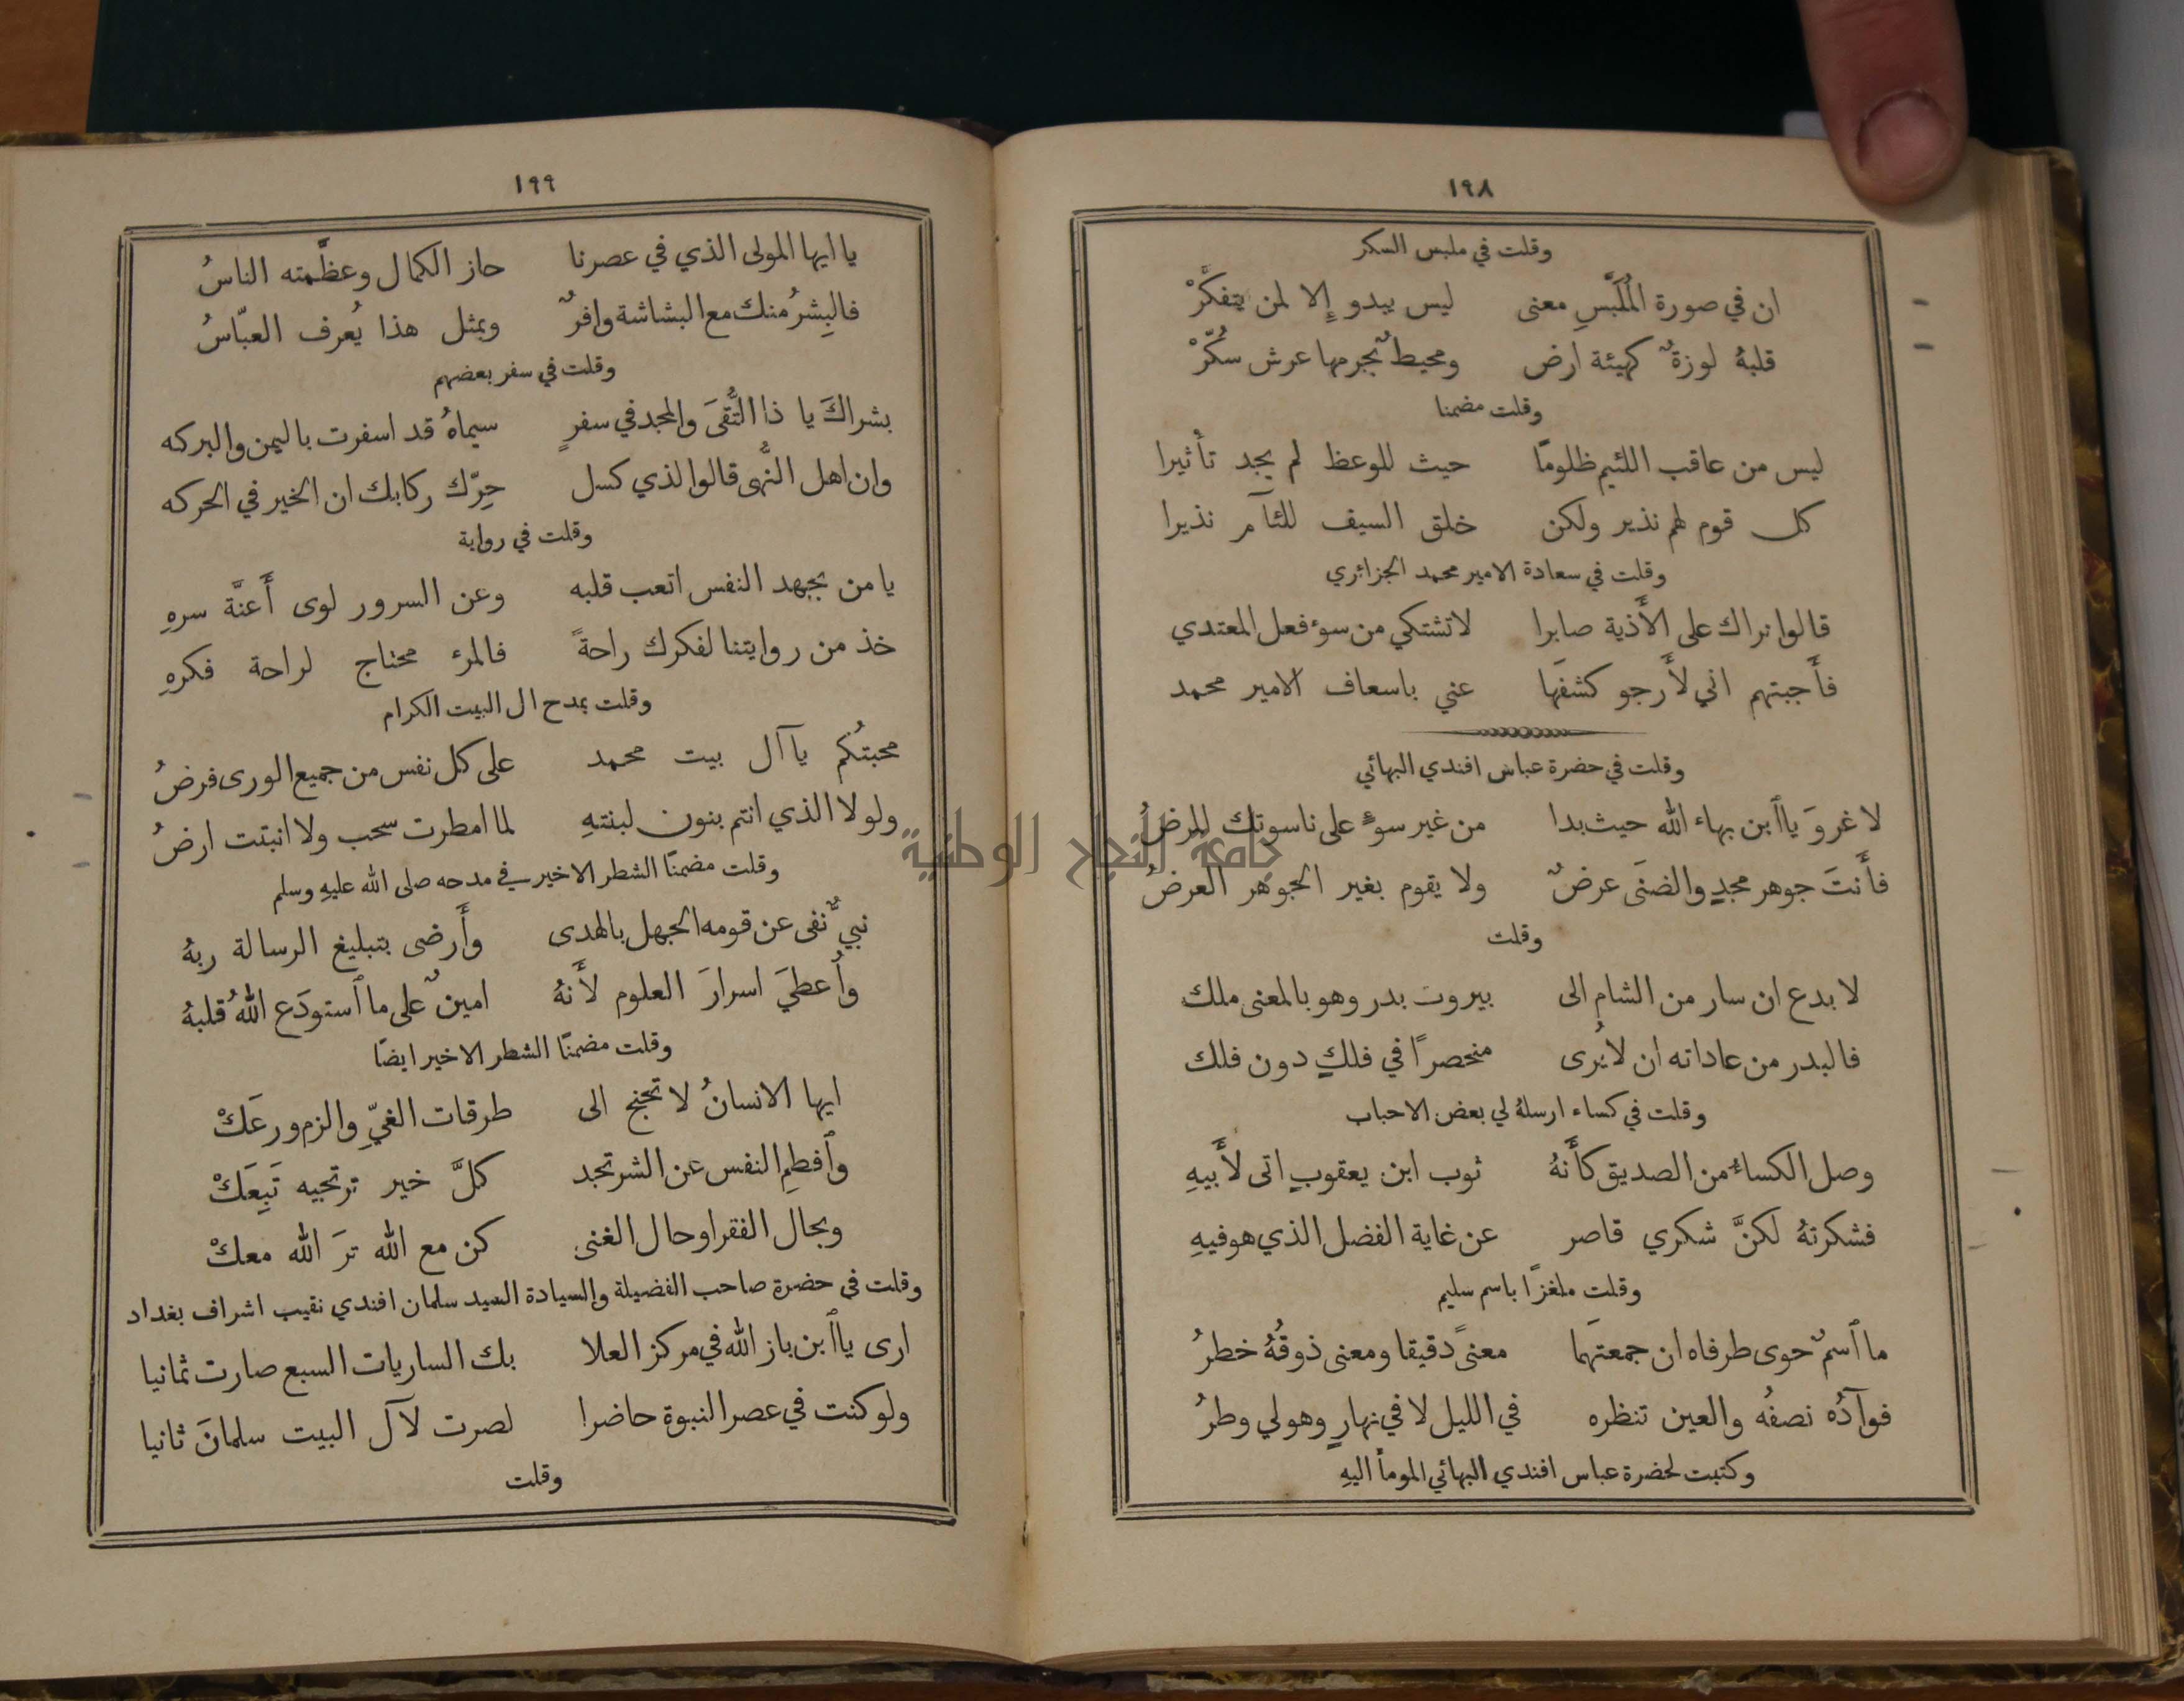 ١٩٨
وقلت في ملبس السكر
ان في صورة المُلَبَّسِ معنى ليس يبدو إلا لمن يتفكَّرْ
قلبهُ لوزةٌ كهيئة ارض ومحيطٌ بجرمها عرش سُكَّرْ
وقلت مضمنا
ليس من عاقب اللئيم ظلومًا حيث للوعظ لم يجد تأثيرا
كل قوم لهم نذير ولكن خلق السيف للئآم نذيرا
وقلت في سعادة الامير محمد الجزائري
قالوا نراك على الأَذية صابرا لا تشتكي من سوء فعل المعتدي
فأَجبتهم اني لأَرجو كشفَها عني باسعاف الامير محمد
وقلت في حضرة عباس افندي البهائي
لا غروَ يا ٱبن بهاء الله حيث بدا من غير سوءٍ على ناسوتك المرضُ
فأَنتَ جوهر مجدٍ والضنَى عرضٌ ولا يقوم بغير الجوهر العرضُ
وقلت
لا بدع ان سار من الشام الى بيروت بدر وهو بالمعنى ملك
فالبدر من عاداته ان لا يُرى منحصرًا في فلكٍ دون فلك
وقلت في كساء ارسلهُ لي بعض الاحباب
وصل الكساءُ من الصديق كأَنهُ ثوب ابن يعقوبٍ اتى لأَبيهِ
فشكرتهُ لكنَّ شكري قاصر عن غاية الفضل الذي هو فيهِ
وقلت ملغزًا باسم سليم
ما ٱسمٌ حوى طرفاه ان جمعتَهما معنىً دقيقا ومعنى ذوقُهُ خطرُ
فوآدُه نصفُه والعين تنظره في الليل لا في نهارٍ وهو لي وطرُ
وكتبت لحضرة عباس افندي البهائي المومأ اليهِ
١٩٩
يا ايها المولى الذي في عصرنا حاز الكمال وعظَّمته الناسُ
فالبِشرُ منك مع البشاشة وافرٌ وبمثل هذا يُعرف العبّاسُ
وقلت في سفر بعضهم
بشراكَ يا ذا التُّقىَ والمجد في سفرٍ سيماهُ قد اسفرت باليمن والبركه
وان اهل النُّهى قالوا لذي كسل حِرّك ركابك ان الخير في الحركه
وقلت في رواية
يا من بجهد النفس اتعب قلبه وعن السرور لوى أَعنَّة سرهِ
خذ من روايتنا لفكرك راحةً فالمرء محتاج لراحة فكرهِ
وقلت بمدح ال البيت الكرام
محبتُكم يا آل بيت محمد على كل نفس من جميع الورى فرضُ
ولولا الذي انتم بنون لبنتهِ لما امطرت سحب ولا انبتت ارضُ
وقلت مضمنًا الشطر الاخير في مدحه صلى الله عليهِ وسلم
نبيٌّ نفى عن قومه الجهل بالهدى وأَرضى بتبليغ الرسالة ربهُ
وأُعطيَ اسرارَ العلوم لأَنهُ امينٌ على ما ٱستودَع اللهُ قلبهُ
وقلت مضمنًا الشطر الاخير ايضًا
ايها الانسانُ لا تجنح الى طرقات الغيّ والزم ورعَكْ
وٱفطمِ النفس عن الشر تجد كلَّ خير ترتجيه تَبِعَكْ
وبحال الفقر او حال الغنى كن مع الله ترَ الله معكْ
وقلت في حضرة صاحب الفضيلة والسيادة السيد سلمان افندي نقيب اشراف بغداد
ارى يا ٱبن باز الله في مركز العلا بك الساريات السبع صارت ثمانيا
ولو كنت في عصر النبوة حاضرا لصرت لآل البيت سلمانَ ثانيا
وقلت
جامعة النجاح الوطنية